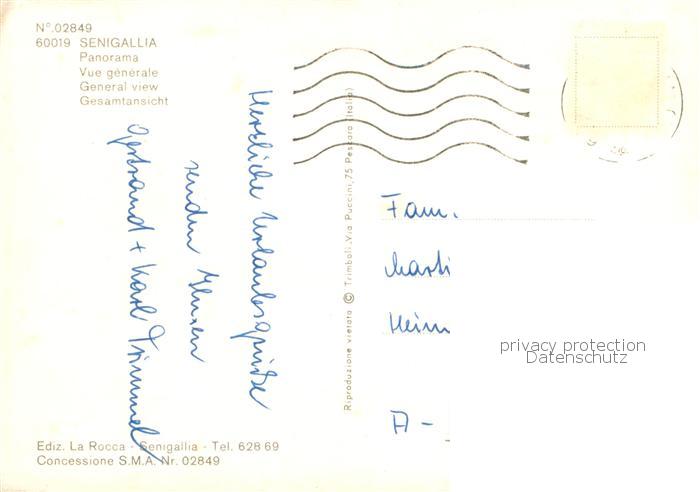 N°.02849
60019 SENIGALLIA
Panorama
Vue générale
General view
Gesamtansicht
Herzliche Urlaubsgrüße
senden Ihnen
Gertraud + Karl Trimmel
Riproduzione vietata © Trimboli.Via Puccini,75 Pescara (Italia)
Fam.
Heim
A-
privacy protection
Datenschutz
Ediz. La Rocca - Senigallia - Tel. 62869
Concessione S.M.A. Nr. 02849